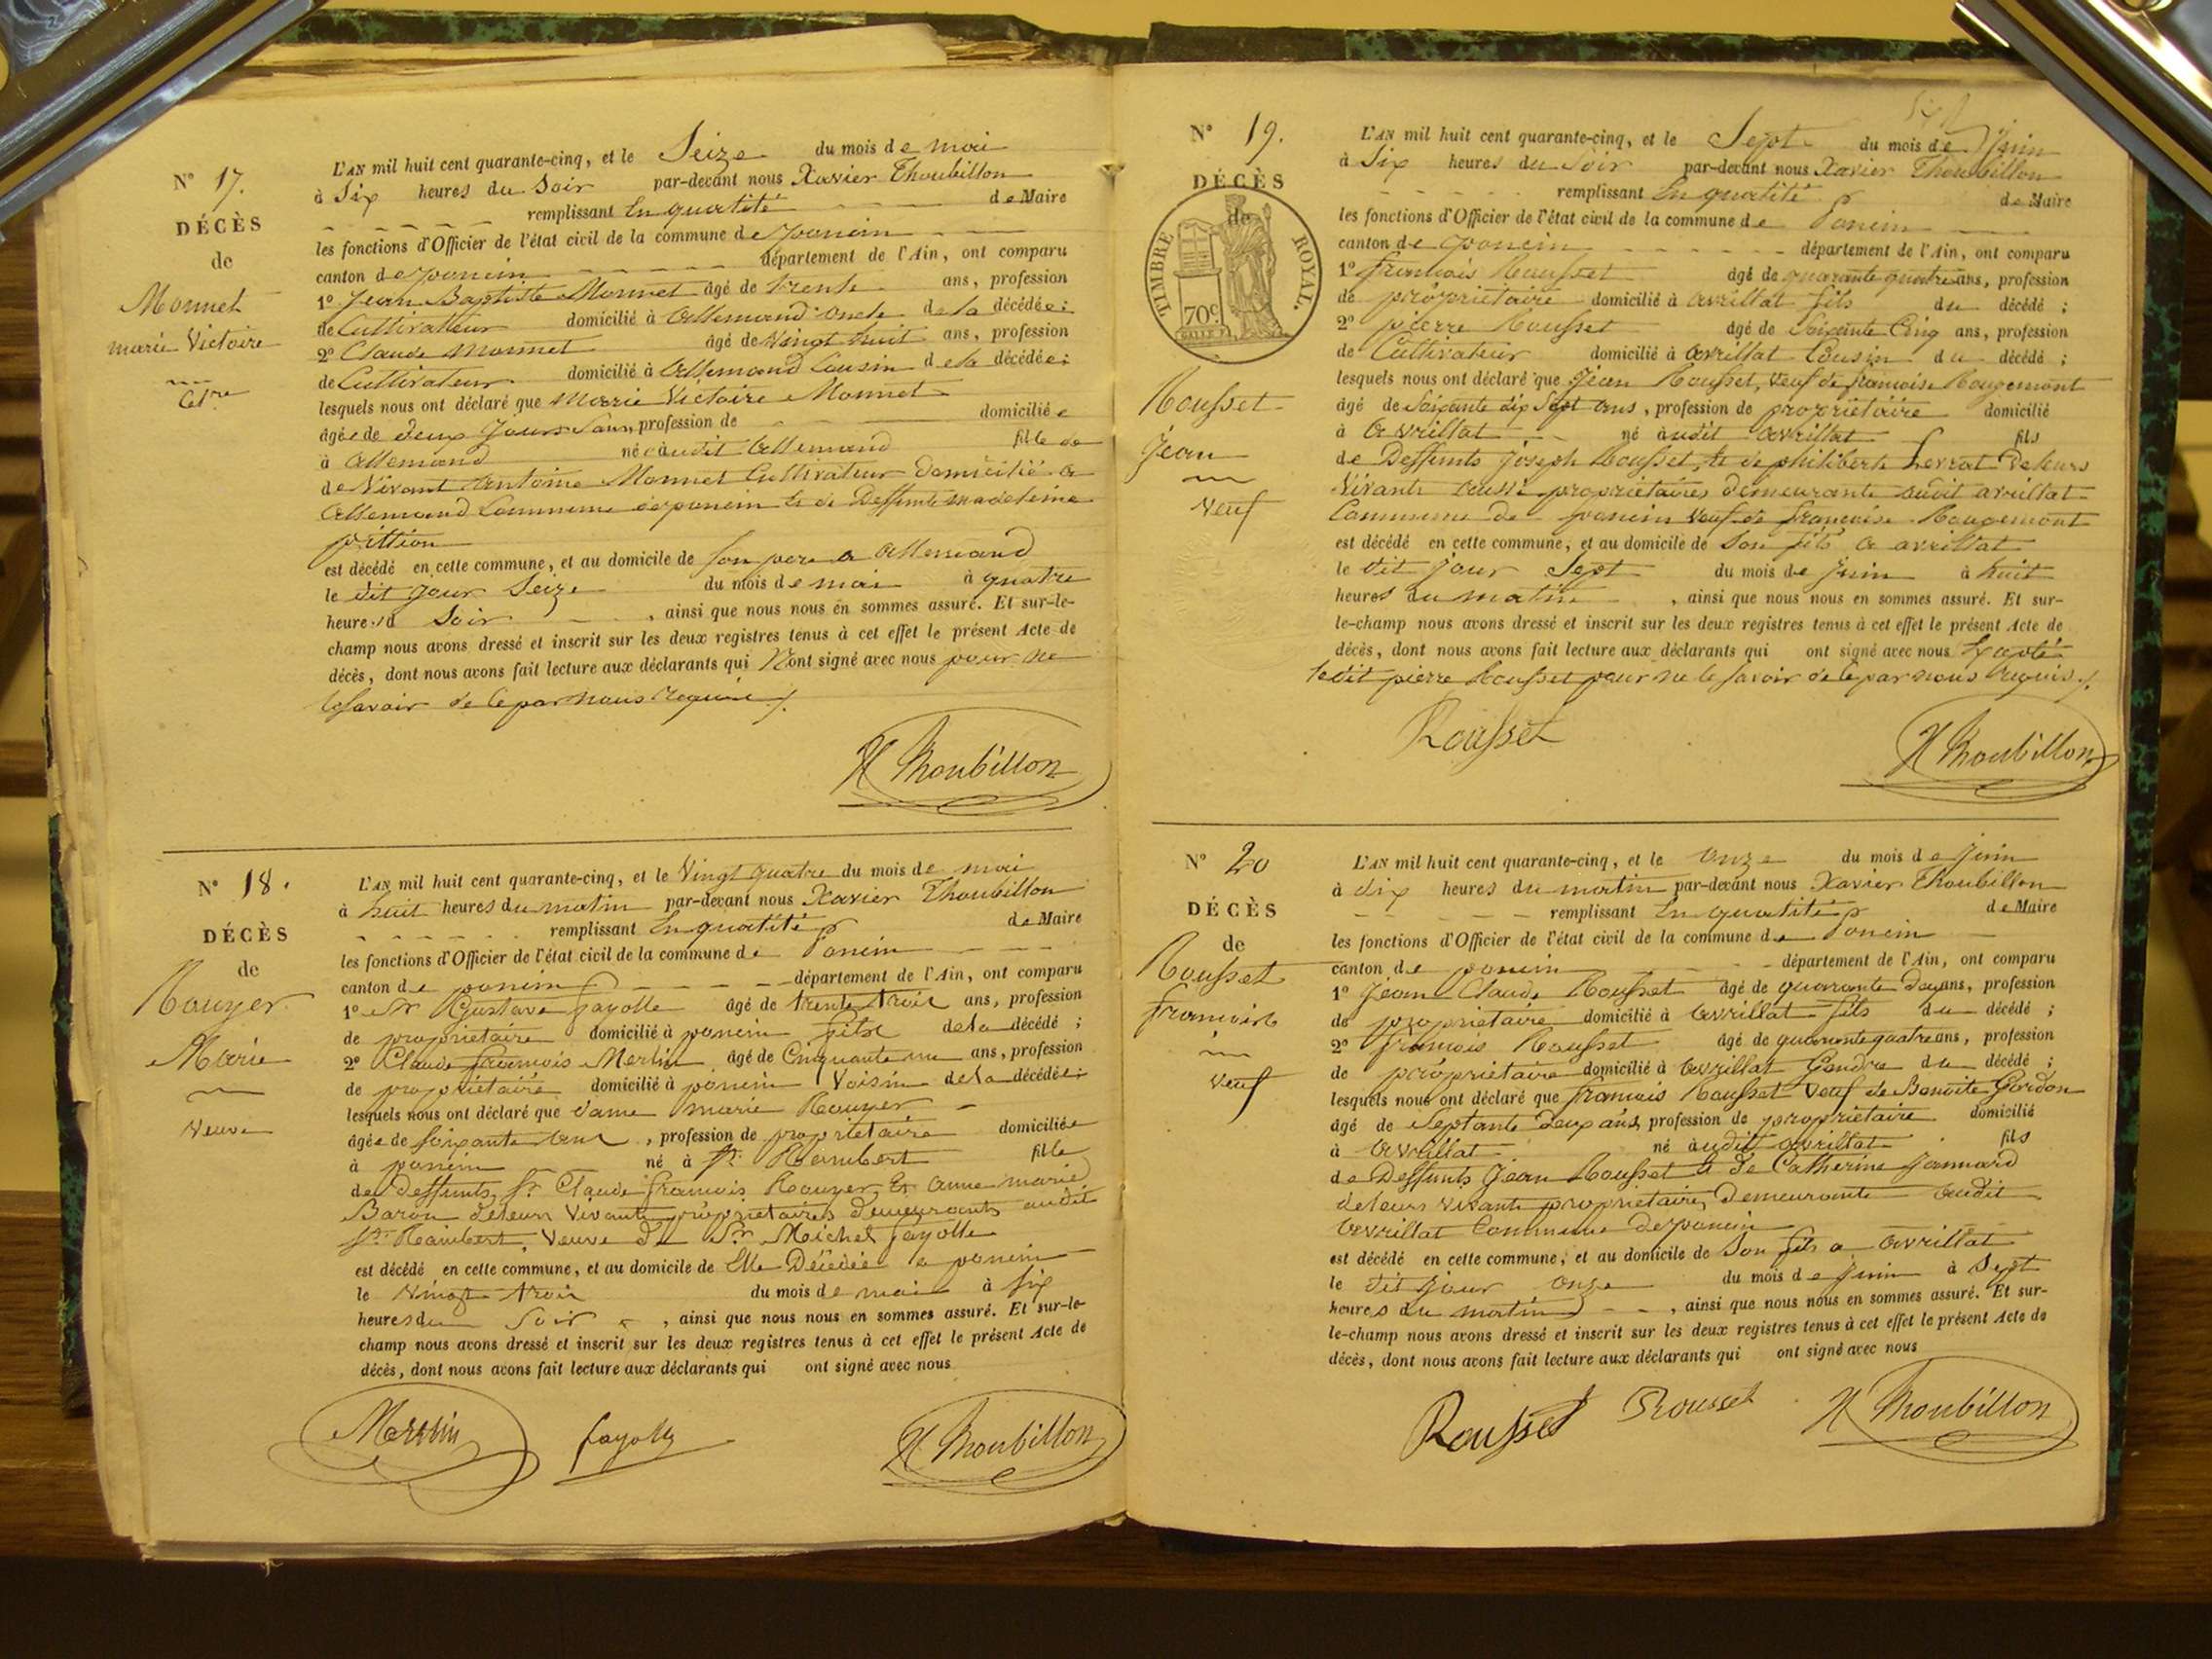 N° 17.
DÉCÈS
de
Monnet
marie Victoire
Cel.re
L'AN mil huit cent quarante-cinq, et le Seize du mois de mai
à Six heures du Soir par-devant nous Xavier Thoubillon
remplissant En qualité de Maire
les fonctions d'Officier de l'état civil de la commune de poncin
canton de poncin département de l'Ain, ont comparu
1° Jean Baptiste Monnet âgé de trente ans, profession
de Cultivateur domicilié à Allemand oncle de la décédée;
2° Claude Monnet âgé de Vingt huit ans, profession
de Cultivateur domicilié à Allemand Cousin de la décédée;
lesquels nous ont déclaré que Marie Victoire Monnet
âgée de deux Jours Sans profession de domiciliée
à Allemand née audit Allemand fille de
de Vivant Antoine Monnet Cultivateur Domicilié a
Allemand Commune de poncin et de Deffunte madeleine
pittion
est décédé en cette commune, et au domicile de Son pere a Allemand
le dit jour Seize du mois de mai à quatre
heures d Soir, ainsi que nous nous en sommes assuré. Et sur-le-
champ nous avons dressé et inscrit sur les deux registres tenus à cet effet le présent Acte de
décès, dont nous avons fait lecture aux déclarants qui N'ont signé avec nous pour ne
le Savoir de ce par nous requis ./.
X Thoubillon
N° 18.
DÉCÈS
de
Rouyer
Marie
Veuve
L'AN mil huit cent quarante-cinq, et le Vingt quatre du mois de mai
à huit heures du matin par-devant nous Xavier Thoubillon
remplissant En qualité de Maire
les fonctions d'Officier de l'état civil de la commune de Poncin
canton de poncin département de l'Ain, ont comparu
1° Sr Gustave fayolle âgé de trente trois ans, profession
de propriétaire domicilié à poncin fils de la décédé;
2° Claude françois Merlin âgé de Cinquante un ans, profession
de propriétaire domicilié à poncin Voisin de la décédée;
lesquels nous ont déclaré que dame marie Rouyer
âgée de Soixante ans, profession de propriétaire domiciliée
à poncin né à St Rambert fille
de deffunts Sr Claude françois Rouyer Et anne marie
Baron deleurs Vivants propriétaires demeurants audit
St Rambert, Veuve du Sr Michel fayolle
est décédé en cette commune, et au domicile de Elle Décédée a poncin
le Vingt trois du mois de mai à Six
heures du Soir, ainsi que nous nous en sommes assuré. Et sur-le-
champ nous avons dressé et inscrit sur les deux registres tenus à cet effet le présent Acte de
décès, dont nous avons fait lecture aux déclarants qui ont signé avec nous
Merlin fayolle X Thoubillon
N° 19.
DÉCÈS
de
TIMBRE ROYAL.
70c.
Rousset
Jean
Veuf
L'AN mil huit cent quarante-cinq, et le Sept du mois de Juin
à Six heures du Soir par-devant nous Xavier Thoubillon
remplissant En qualité de Maire
les fonctions d'Officier de l'état civil de la commune de Poncin
canton de poncin département de l'Ain, ont comparu
1° françois Rousset âgé de quarante quatre ans, profession
de propriétaire domicilié à avrillat fils du décédé;
2° pierre Rousset âgé de Soixante Cinq ans, profession
de Cultivateur domicilié à avrillat Cousin du décédé;
lesquels nous ont déclaré que Jean Rousset, Veuf de françoise Rougemont
âgé de Soixante dix Sept ans, profession de propriétaire domicilié
à avrillat né audit avrillat fils
de Deffunts Joseph Rousset, et de philiberte deleurs
Vivants aussi propriétaires demeurants audit avrillat
Commune de poncin Veuf de françoise Rougemont
est décédé en cette commune, et au domicile de Son fils a avrillat
le dit jour Sept du mois de juin à huit
heures du matin, ainsi que nous nous en sommes assuré. Et sur-
le-champ nous avons dressé et inscrit sur les deux registres tenus à cet effet le présent Acte de
décès, dont nous avons fait lecture aux déclarants qui ont signé avec nous Excepté
ledit pierre Rousset pour ne le Savoir de ce par nous requis ./.
Rousset X Thoubillon
N° 20
DÉCÈS
de
Rousset
françois
Veuf
L'AN mil huit cent quarante-cinq, et le onze du mois de Juin
à dix heures du matin par-devant nous Xavier Thoubillon
remplissant En qualité de Maire
les fonctions d'Officier de l'état civil de la commune de Poncin
canton de poncin département de l'Ain, ont comparu
1° Jean Claude Rousset âgé de quarante deux ans, profession
de propriétaire domicilié à avrillat fils du décédé;
2° françois Rousset âgé de quarante quatre ans, profession
de propriétaire domicilié à avrillat Gendre du décédé;
lesquels nous ont déclaré que françois Rousset Veuf de Benoite Gardon
âgé de Septante deux ans, profession de propriétaire domicilié
à avrillat né audit avrillat fils
de Deffunts Jean Rousset Et de Catherine
deleurs vivants propriétaires Demeurants audit
avrillat Commune de poncin
est décédé en cette commune, et au domicile de Son fils a avrillat
le dit jour onze du mois de Juin à Sept
heures du matin, ainsi que nous nous en sommes assuré. Et sur-
le-champ nous avons dressé et inscrit sur les deux registres tenus à cet effet le présent Acte de
décès, dont nous avons fait lecture aux déclarants qui ont signé avec nous
Rousset Rousset X Thoubillon